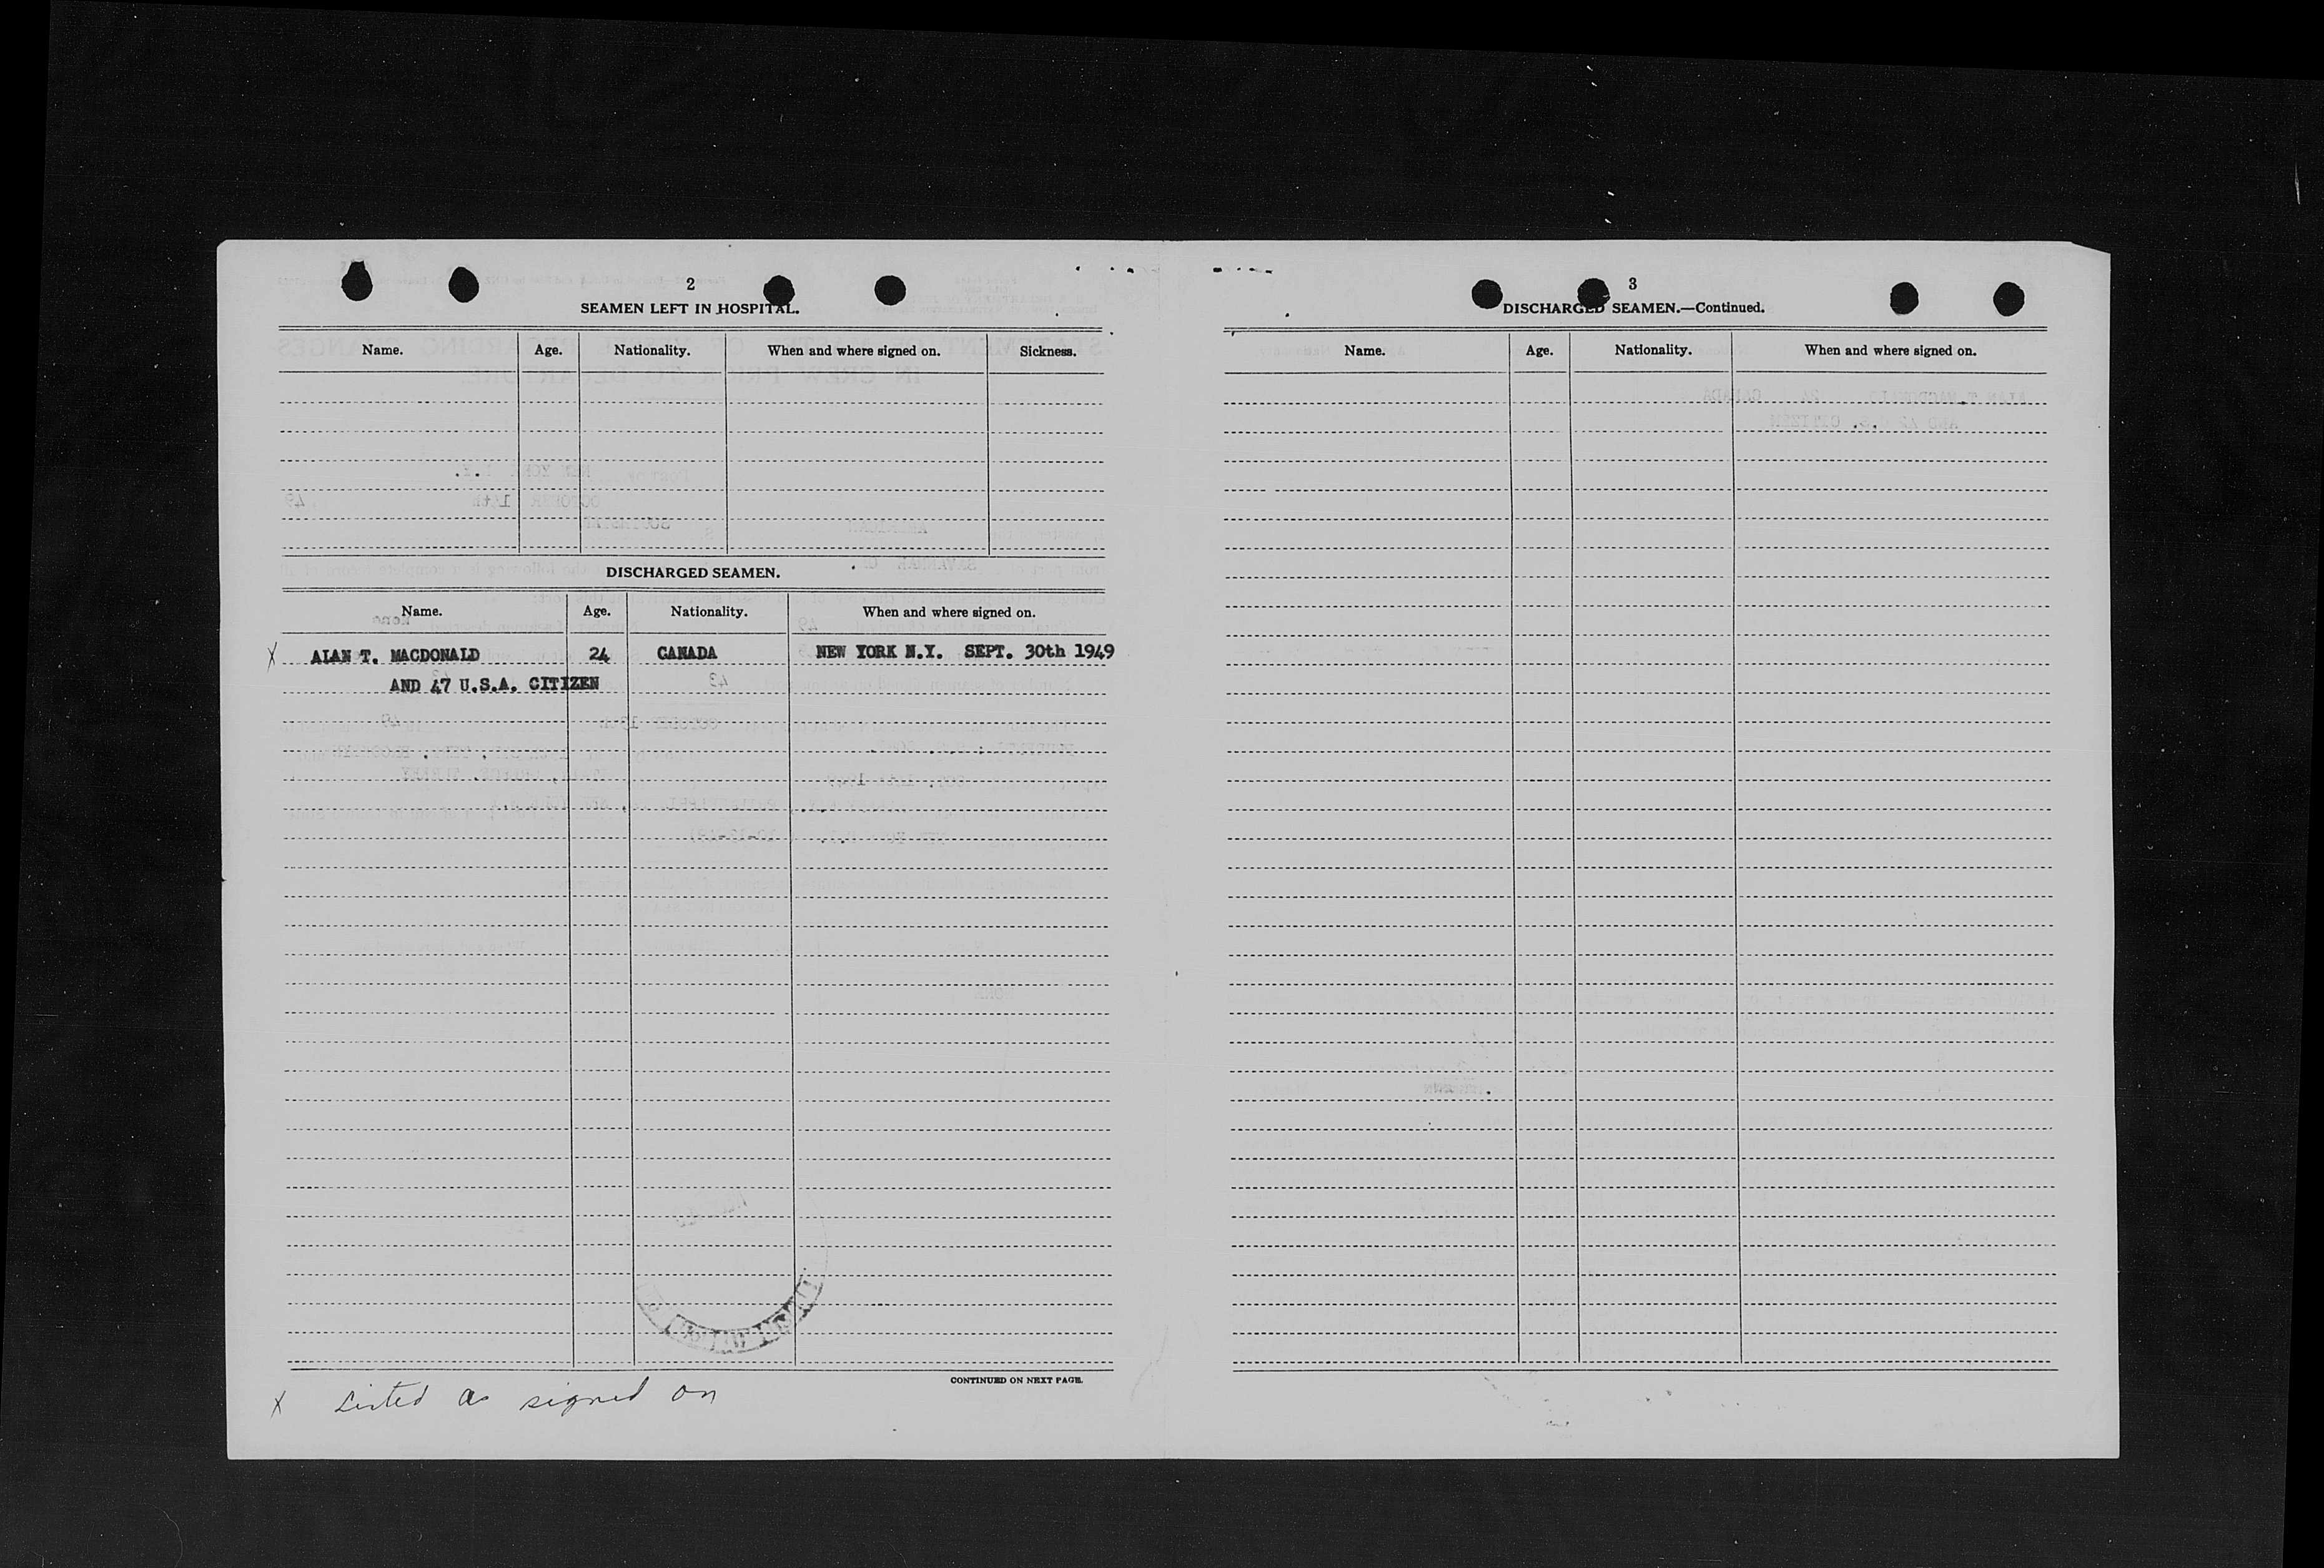 2
SEAMEN LEFT IN HOSPITAL.
Name. Age. Nationality. When and where signed on. Sickness.
DISCHARGED SEAMEN.
Name. Age. Nationality. When and where signed on.
X ALAN T. MACDONALD 24 CANADA NEW YORK N.Y. SEPT. 30th 1949
AND 47 U.S.A. CITIZEN
CONTINUED ON NEXT PAGE.
X Listed as signed on
3
DISCHARGED SEAMEN.—Continued.
Name. Age. Nationality. When and where signed on.